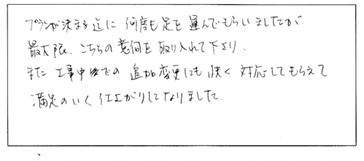 プランが決まる迄に何度も足を運んでもらいましたが
最大限、こちらの意向を取り入れて下さり、
また工事中後での追加変更にも快く対応してもらえて
満足のいく仕上がりになりました。